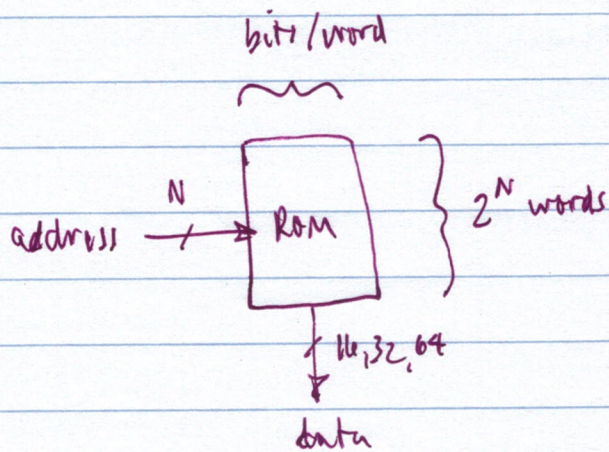 bits/word
N
address
ROM
2^N words
16,32,64
data